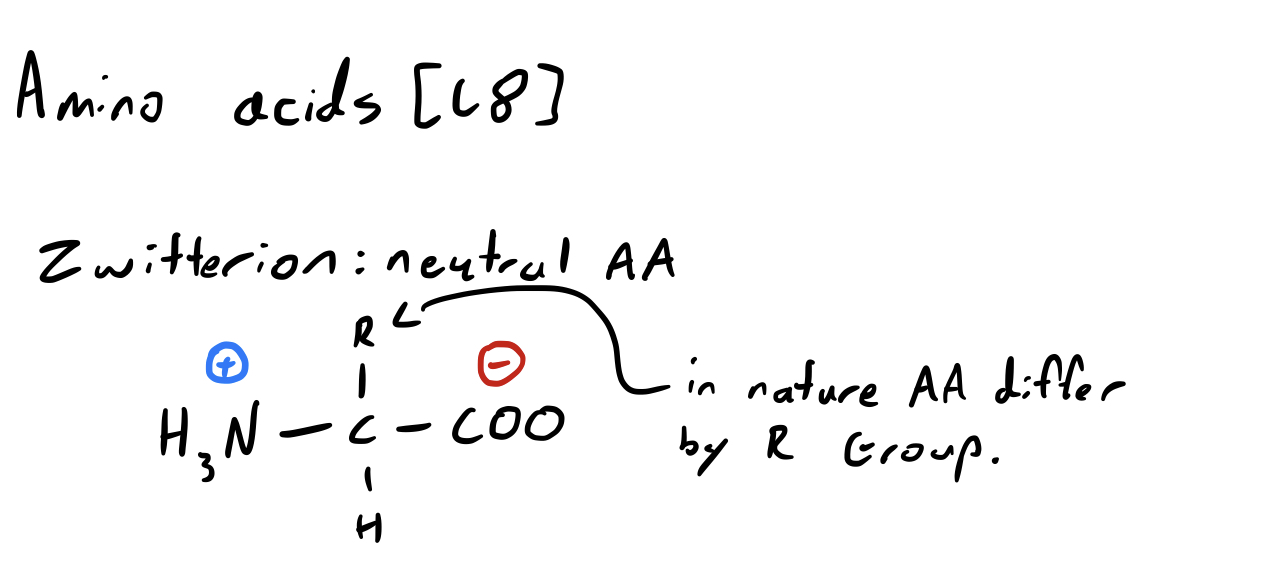 Amino acids [C8]
Zwitterion: neutral AA
R
⊕ ⊖
H₃N — C — COO
H
in nature AA differ
by R Group.